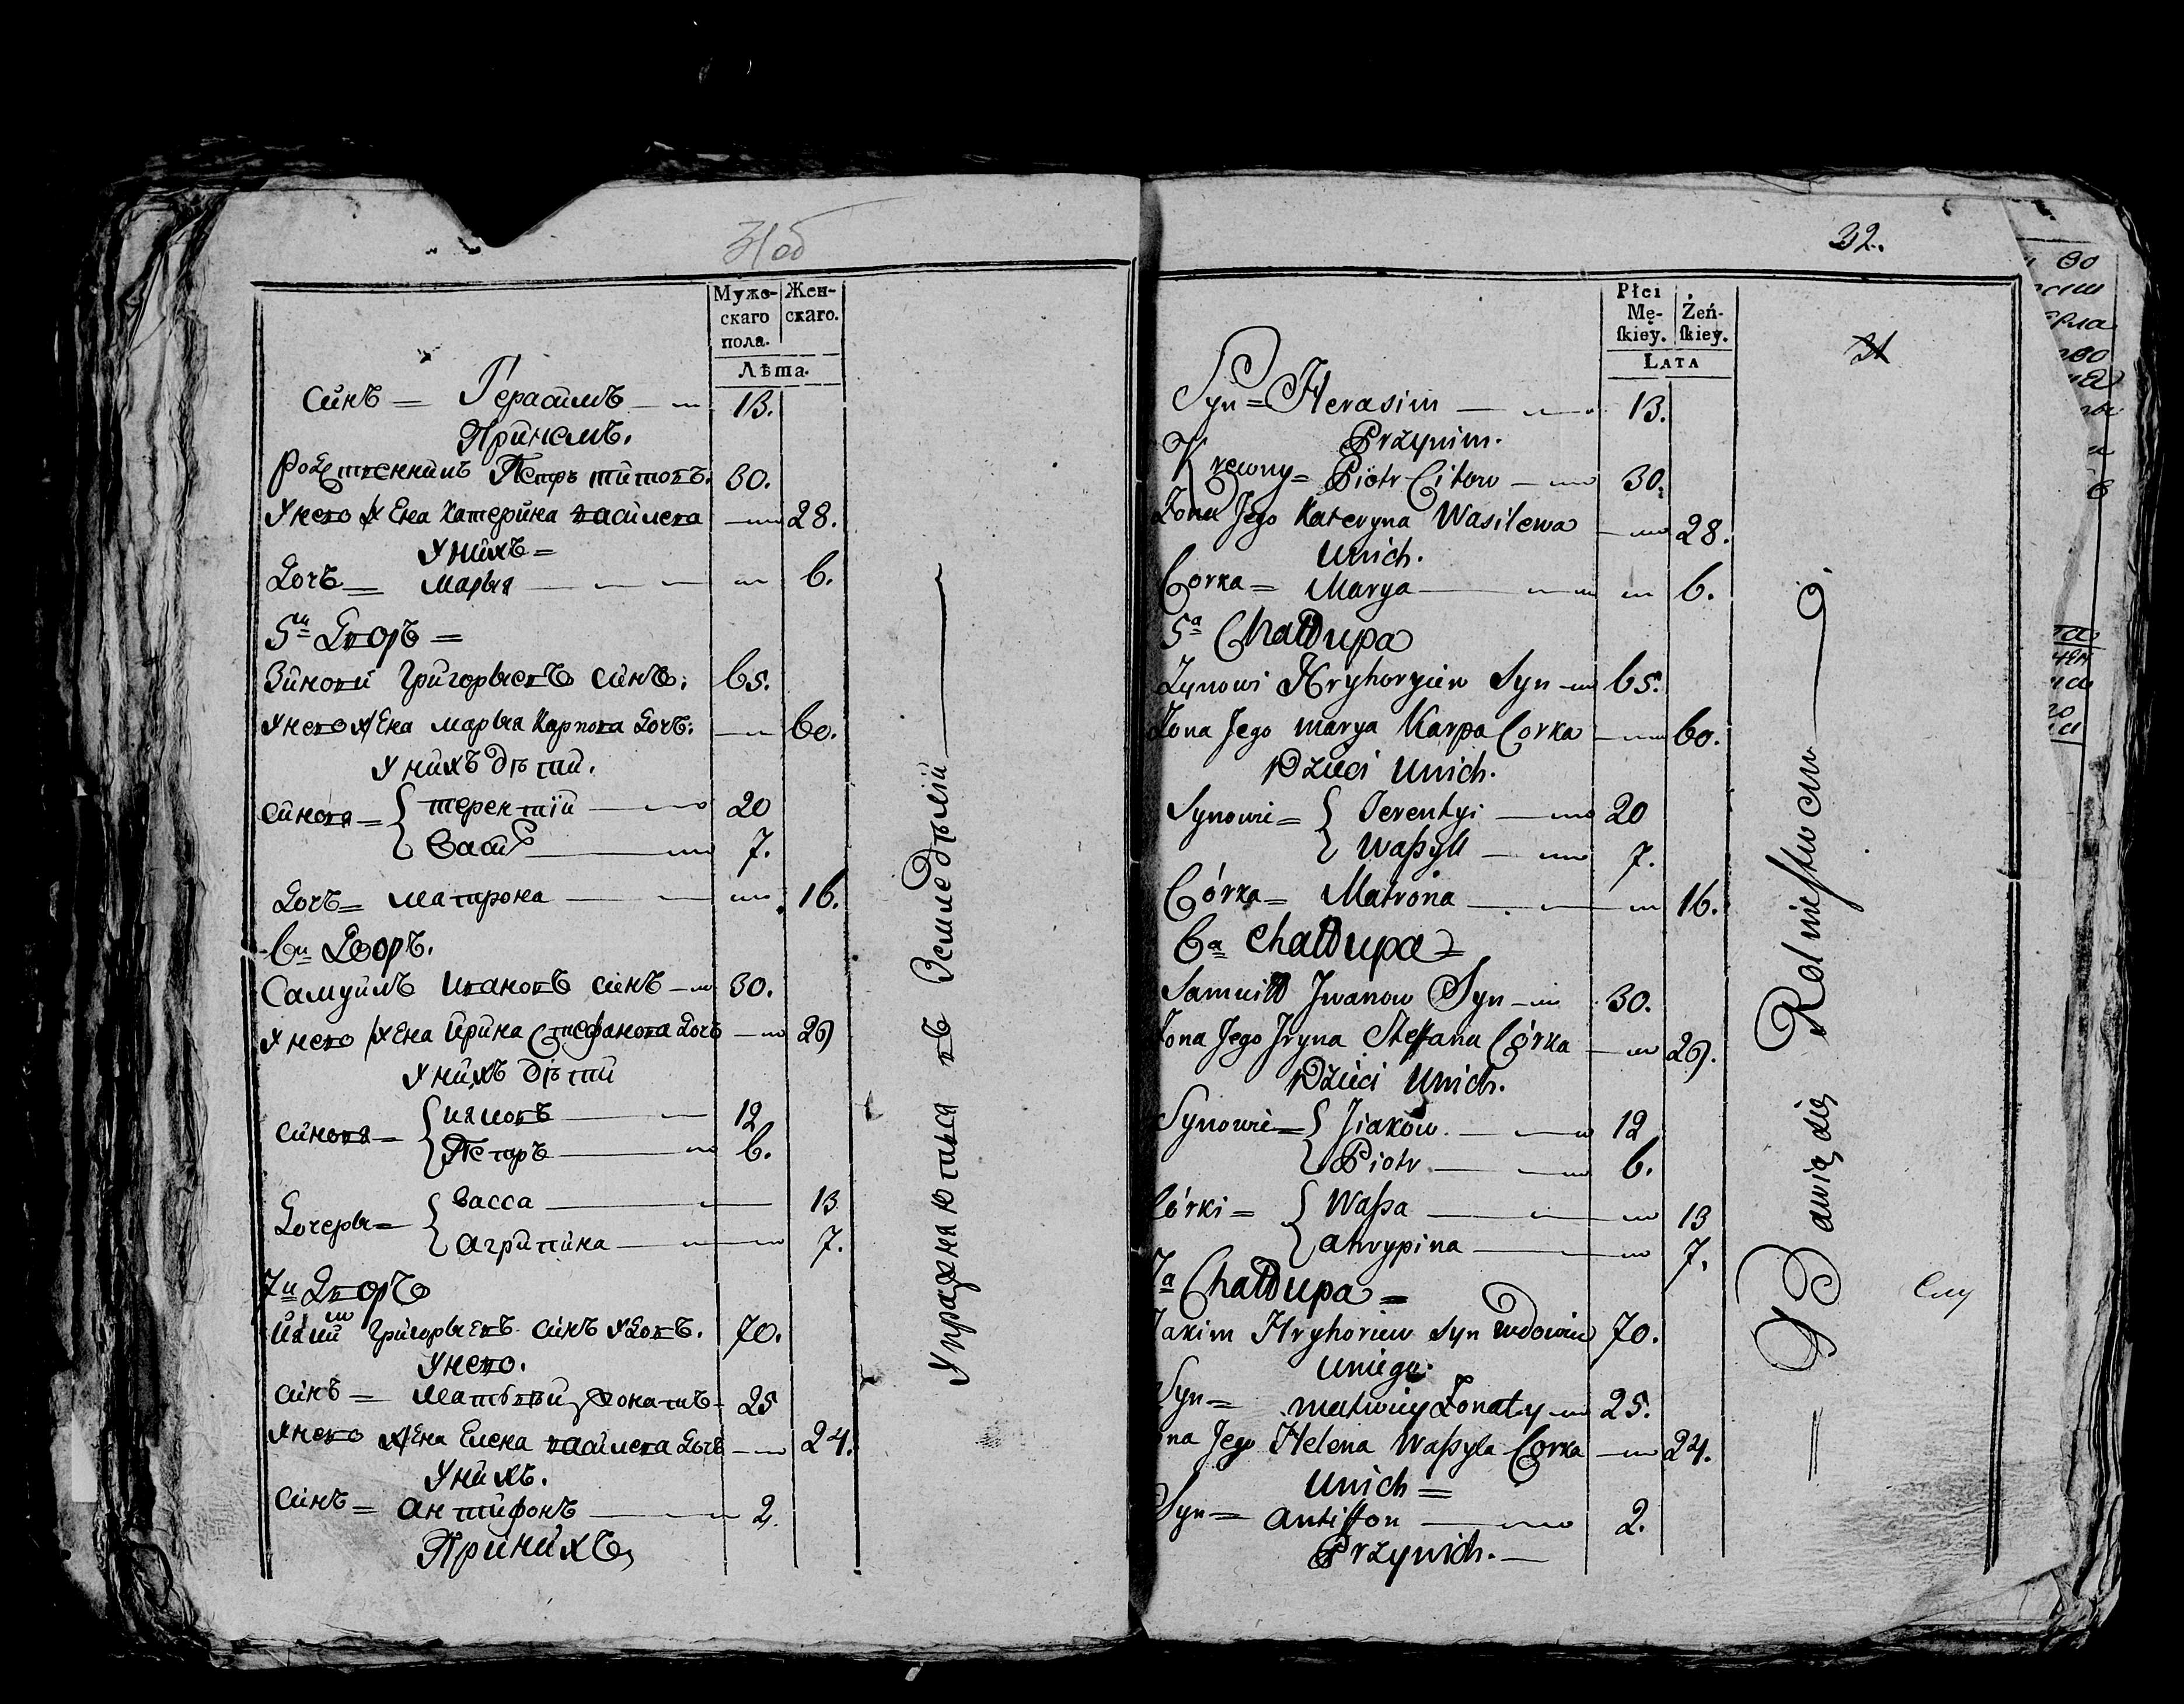 31 об
Мужескаго пола.
Женскаго.
Лѣта.
Синъ = Герасимъ 13.
При немъ.
Родственникъ Петръ титовъ. 30.
У него жена Катерина василева 28.
У нихъ =
Дочъ = Марья 6.
5й Дворъ =
Зиновий Григорьевъ синъ. 65.
У него жена марья Карпова Дочъ. 60.
У нихъ дѣти.
Синовя = терентій 20
Васил 7.
Дочъ = матрона 16.
6й Дворъ.
Самуилъ Ивановъ синъ 30.
У него жена Ирина Стефанова Дочъ 29
У нихъ дѣти
Синовя = ияковъ 12
Петръ 6.
Дочеры = Васса 13
Агрипина 7.
7й Дворъ
Григорьевъ синъ удовъ. 70.
У него.
Синъ = Матвѣй жонатъ 25
У него жена Елена василева Дочъ 24.
У нихъ.
Синъ = антифонъ 2.
При нихъ
Упражняются въ Земледѣлій
32.
31
Płci Męſkiey.
Żeńſkiey.
LATA
Syn = Herasim 13.
Przynim.
Krewny = Piotr Citow 30.
Żona Jego Kateryna Wasilewa 28.
Unich.
Corka = Marya 6.
5a Chałłupa
Zynowi Hryhoryiew Syn 65.
Żona Jego marya Karpa Corka 60.
Dzieci Unich.
Synowie = Terentyi 20
Waßyll 7.
Córka = Matróna 16.
6a Chałłupa =
Samuiłł Jwanow Syn 30.
Żona Jego Jryna Steffana Córka 29.
Dzieci Unich.
Synowie = Jiakow 12
Piotr 6.
Córki = Waßa 13
ahrypina 7.
7a Chałłupa =
Jakim Hryhoriew Syn wdowiec 70.
Uniego.
Syn = matwiey Żonaty 25.
Żona Jego Helena Waßyla Corka 24.
Unich =
Syn = antiffon 2.
Przynich.
= Bawią się Rolnictwem